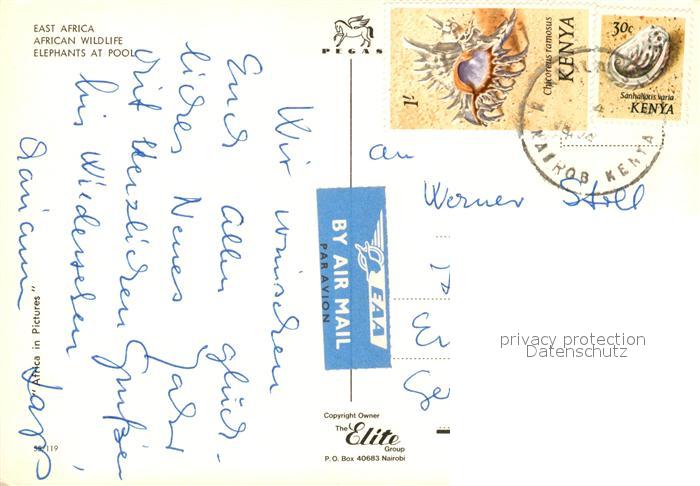 EAST AFRICA
AFRICAN WILDLIFE
ELEPHANTS AT POOL
PEGAS
Wir wünschen
Euch allen glück-
liches Neues Jahr
Mit Herzlichen Grüßen
bis Wiedersehen
"Africa in Pictures"
119
BY AIR MAIL
PAR AVION
EAA
Copyright Owner
The Elite
Group
P. O. Box 40683 Nairobi
1/-
Chicoreus ramosus
KENYA
30c
KENYA
NAIROBI, KENYA
an
Werner Stoll
privacy protection
Datenschutz